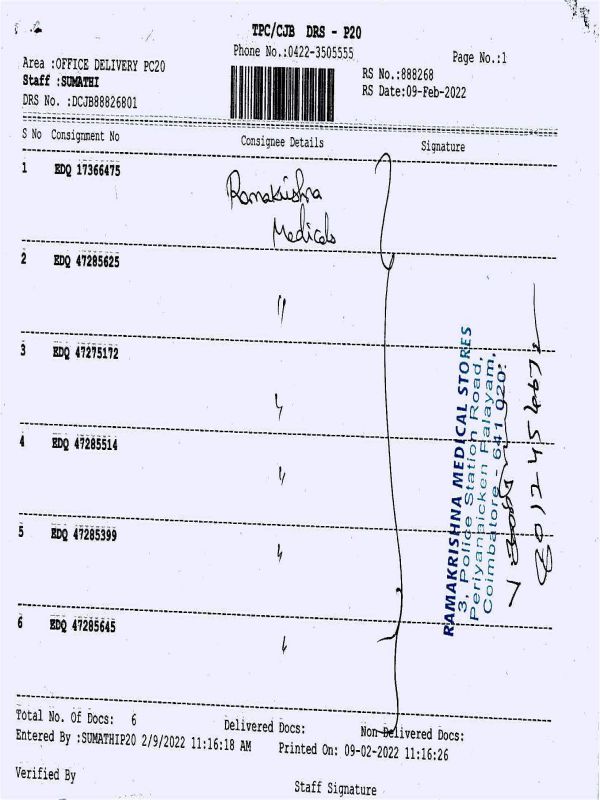 TPC/CJB DRS - P20
Phone No.:0422-3505555
Page No.:1
Area :OFFICE DELIVERY PC20
RS No.:888268
Staff :SUMATHI
RS Date:09-Feb-2022
DRS No. :DCJB88826801
S No Consignment No Consignee Details Signature
1 EDQ 17366475
Ramakrishna
Medicals
2 EDQ 47285625
"
3 EDQ 47275172
"
4 EDQ 47285514
"
5 EDQ 47285399
"
6 EDQ 47285645
"
RAMAKRISHNA MEDICAL STORES
3, Police Station Road,
Periyanaicken Palayam,
Coimbatore - 641 020.
Total No. Of Docs: 6 Delivered Docs: Non Delivered Docs:
Entered By :SUMATHIP20 2/9/2022 11:16:18 AM Printed On: 09-02-2022 11:16:26
Verified By
Staff Signature